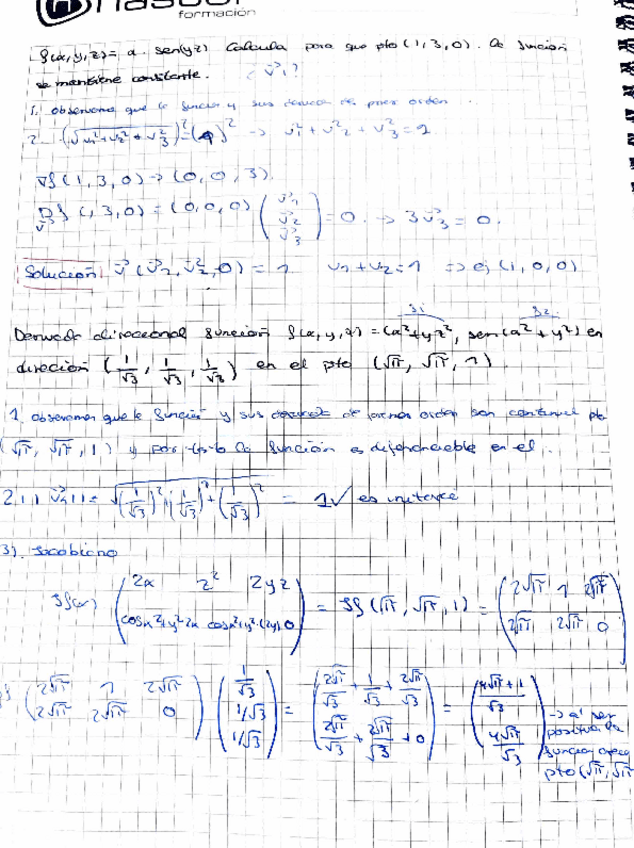 formación
f(x,y,z)= x · sen(yz) Calcula para que pto (1,3,0). la función
se mantiene constante. ¿ v⃗?
1. observamos que la función y sus derivadas de primer orden ..
2. (√(v₁²+v₂²+v₃²))²=(1)² → v₁²+v₂²+v₃²=1
∇f(1,3,0)→(0,0,3).
(1,3,0)=(0,0,0) (v⃗₁ v⃗₂ v⃗₃)=0. → 3v⃗₃=0.
Solución v⃗(v⃗₁,v⃗₂,0)=1 v₁+v₂=1 ⇒ ej (1,0,0)
Derivada direccional función f(x,y,z)=(x²+yz², sen(x²+y²) en
dirección (1/√3, 1/√3, 1/√3) en el pto (√π, √π, 1)
1. observamos que la función y sus derivadas de primer orden son continuas pto
(√π, √π, 1) y por tanto la función es diferenciable en el.
2. || v⃗ ||= √((1/√3)²+(1/√3)²+(1/√3)²) = 1√ es unitario
3). Jacobiano
Jf(x) (2x z² 2yz; cosx²+y²·2x cosx²+y²·(2y) 0) = Jf(√π, √π, 1) = (2√π 1 2√π; 2√π 2√π 0)
(2√π 1 2√π; 2√π 2√π 0) · (1/√3 1/√3 1/√3) = (2√π/√3 + 1/√3 + 2√π/√3; 2√π/√3 + 2√π/√3 + 0) = (4√π+1/√3; 4√π/√3)
→ al ser
positiva la
función crece
pto (√π, √π